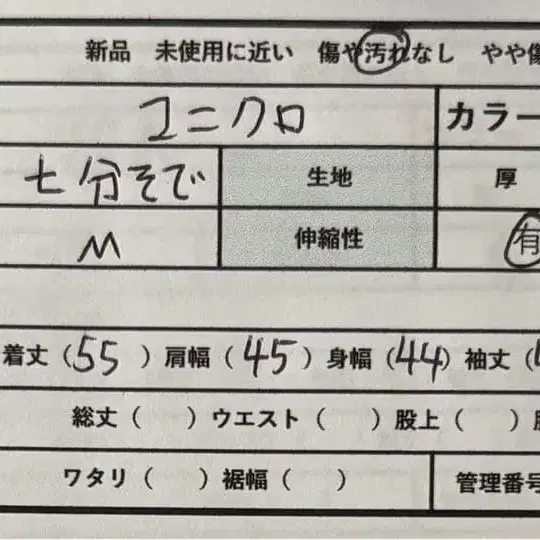 新品 未使用に近い 傷や汚れなし やや傷
ユニクロ カラー
七分そで 生地 厚
M 伸縮性 有
着丈（55）肩幅（45）身幅（44）袖丈（
総丈（ ）ウエスト（ ）股上（ ）
ワタリ（ ）裾幅（ ） 管理番号